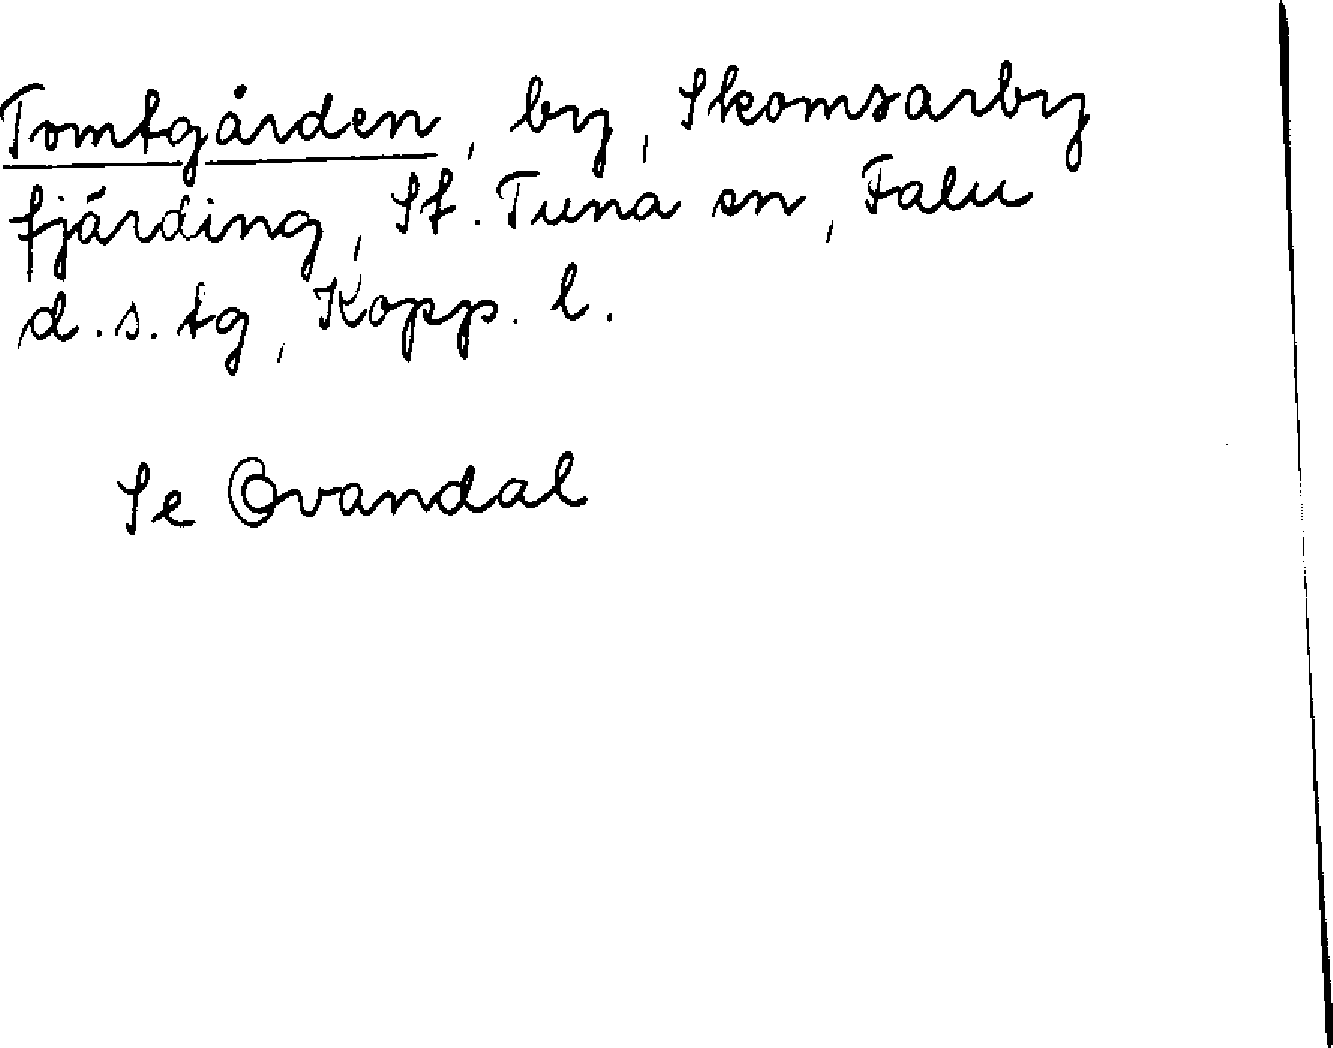 Tomtgården, by, Skomsarby
fjärding, St. Tuna sn, Falu
d.s.tg, Kopp. l.
Se Ovandal